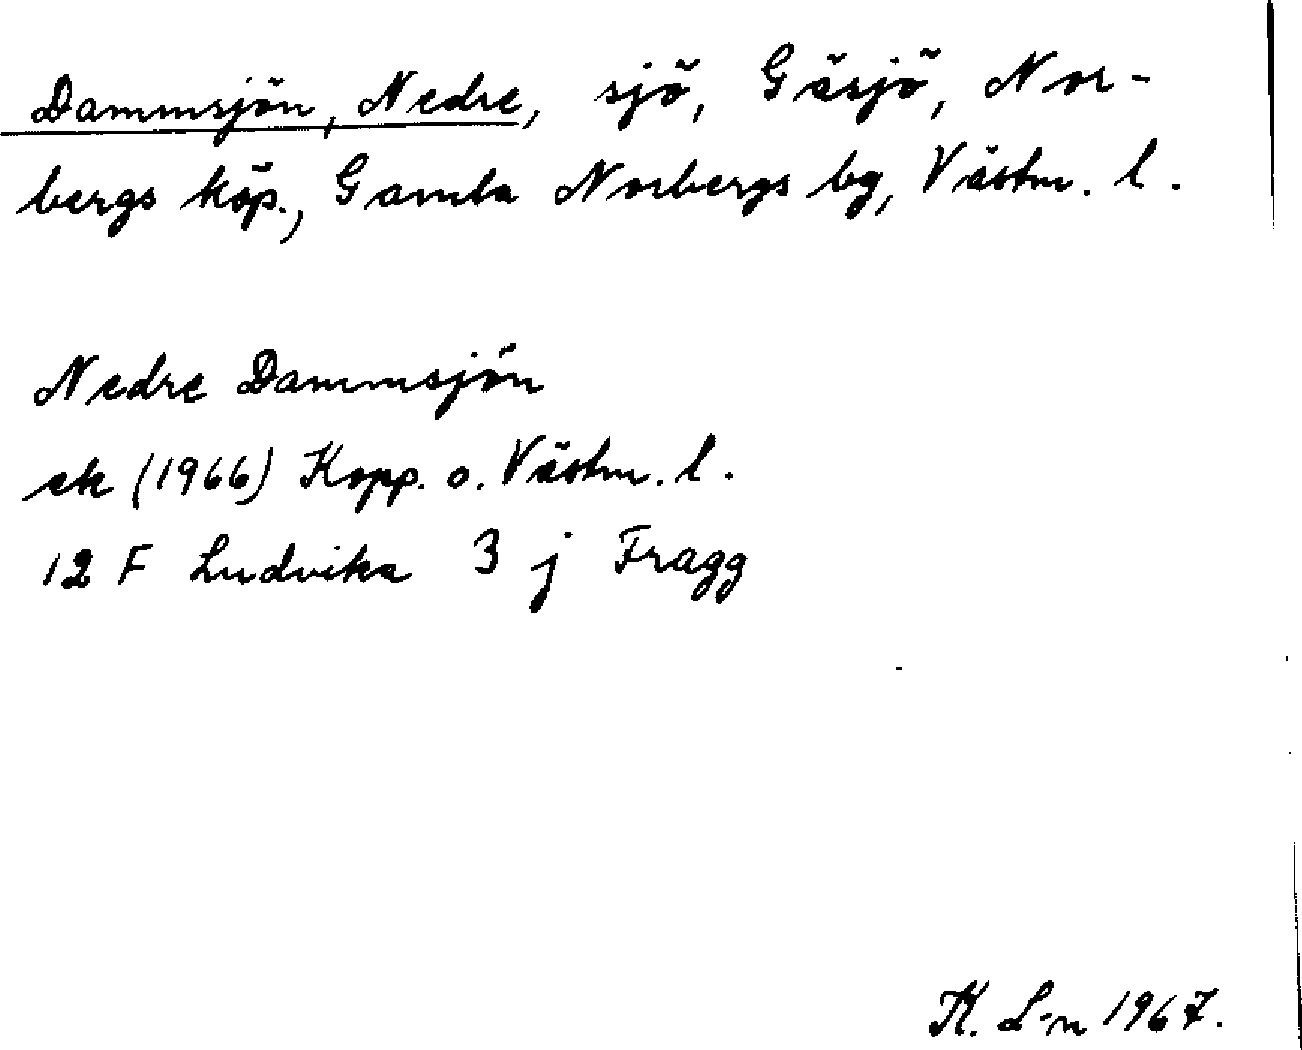 Dammsjön, Nedre, sjö, Gäsjö, Nor-
bergs köp., Gamla Norbergs bg, Västm. l.
Nedre Dammsjön
ek (1966) Kopp. o. Västm. l.
12 F Ludvika 3 j Fragg
K. L-n 1967.